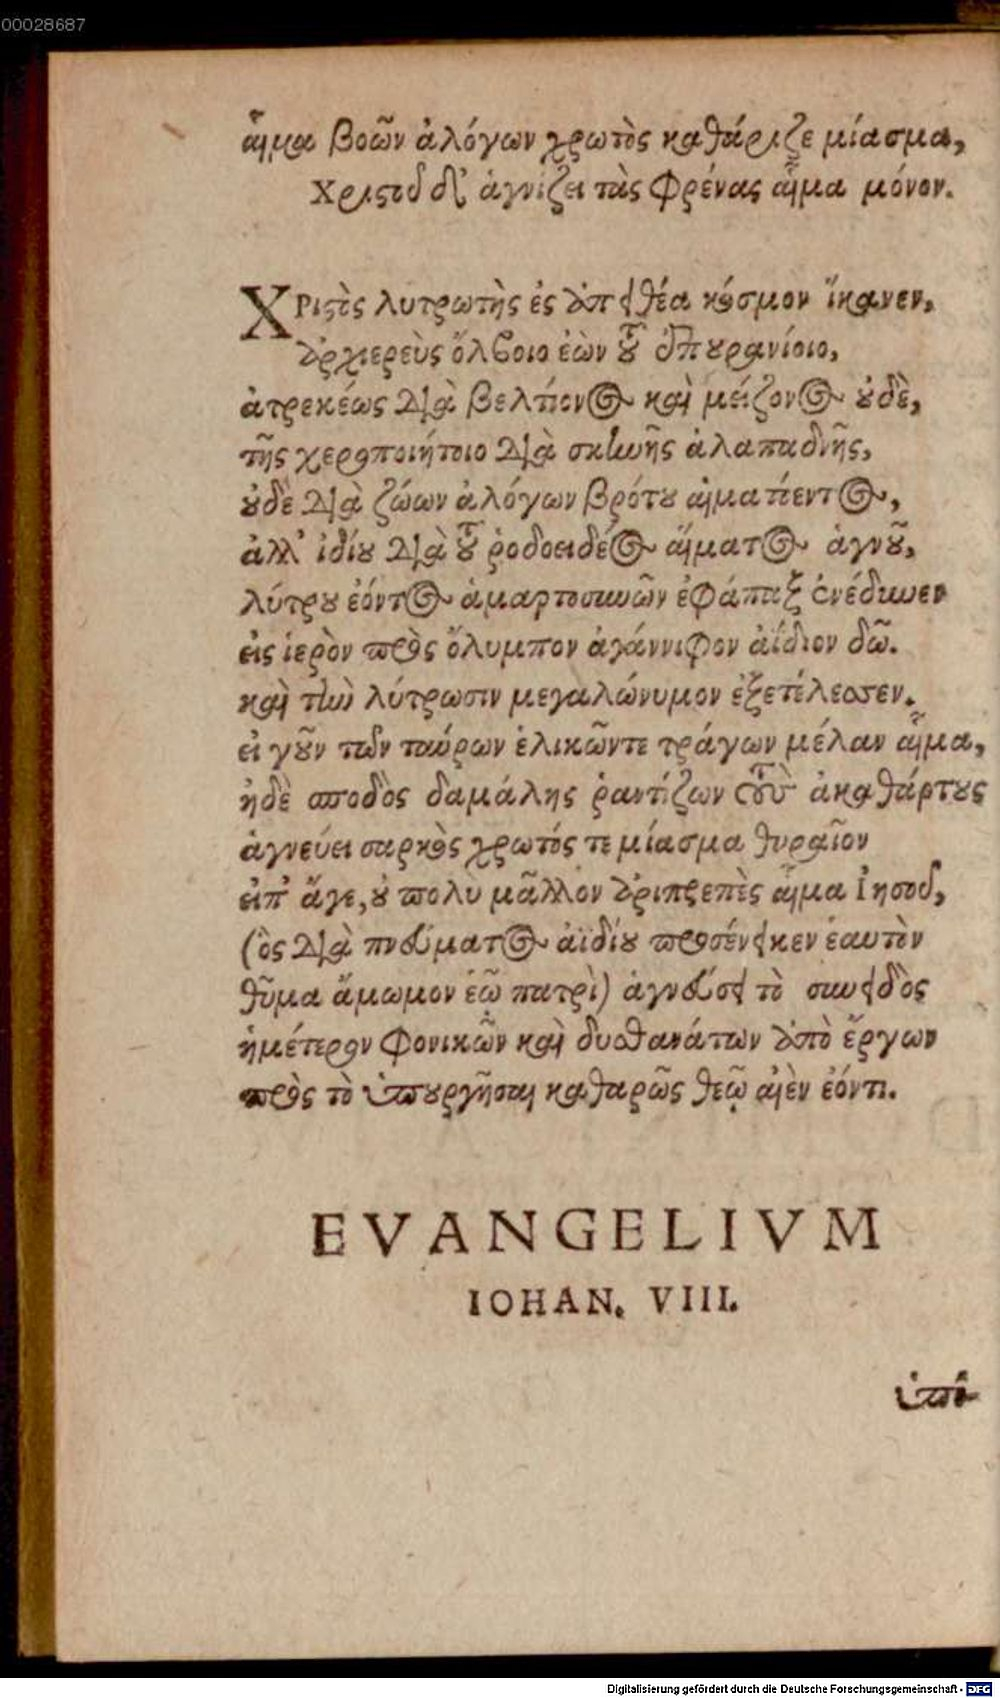 00028687
αἷμα βοῶν ἀλόγων χρωτὸς καθάριζε μίασμα,
Χριστοῦ δ' ἁγνίζει τὰς φρένας αἷμα μόνον.
ΧΡιστὸς λυτρωτὴς ἐς ἐπεὶ θέα κόσμον ἵκανεν,
ἀρχιερεὺς ὄλβοιο ἐὼν τοῦ ἐπουρανίοιο,
ἀτρεκέως διὰ βελτίονος καὶ μείζονος οὐδὲ,
τῆς χεροποιήτοιο διὰ σκηνῆς ἀλαπαδνῆς,
οὐδὲ διὰ ζώων ἀλόγων βρότου αἱματόεντος,
ἀλλ' ἰδίου διὰ τοῦ ῥοδοειδέος αἵματος ἁγνοῦ,
λύτρου ἐόντος ἁμαρτοσυνῶν ἐφάπαξ ἐνέδυνεν
εἰς ἱερὸν πρὸς ὄλυμπον ἀγάννιφον ἀΐδιον δῶ.
καὶ τὴν λύτρωσιν μεγαλώνυμον ἐξετέλεσσεν.
εἰ γοῦν τῶν ταύρων ἑλικῶντε τράγων μέλαν αἷμα,
ἠδὲ σποδὸς δαμάλης ῥαντίζων τοὺς ἀκαθάρτους
ἁγνεύει σαρκὸς χρωτός τε μίασμα θυραῖον
εἰπ' ἄγε, οὐ πολὺ μᾶλλον ἀριπρεπὲς αἷμα Ἰησοῦ,
(ὃς διὰ πνεύματος ἀϊδίου προσένεικεν ἑαυτὸν
θῦμα ἄμωμον ἑῷ πατρὶ) ἁγνεύσει τὸ συνειδὸς
ἡμέτερον φονικῶν καὶ δυσθανάτων ἀπὸ ἔργων
πρὸς τὸ ὑπουργῆσαι καθαρῶς θεῷ αἰὲν ἐόντι.
EVANGELIVM
IOHAN. VIII.
ὑπὸ
Digitalisierung gefördert durch die Deutsche Forschungsgemeinschaft - DFG